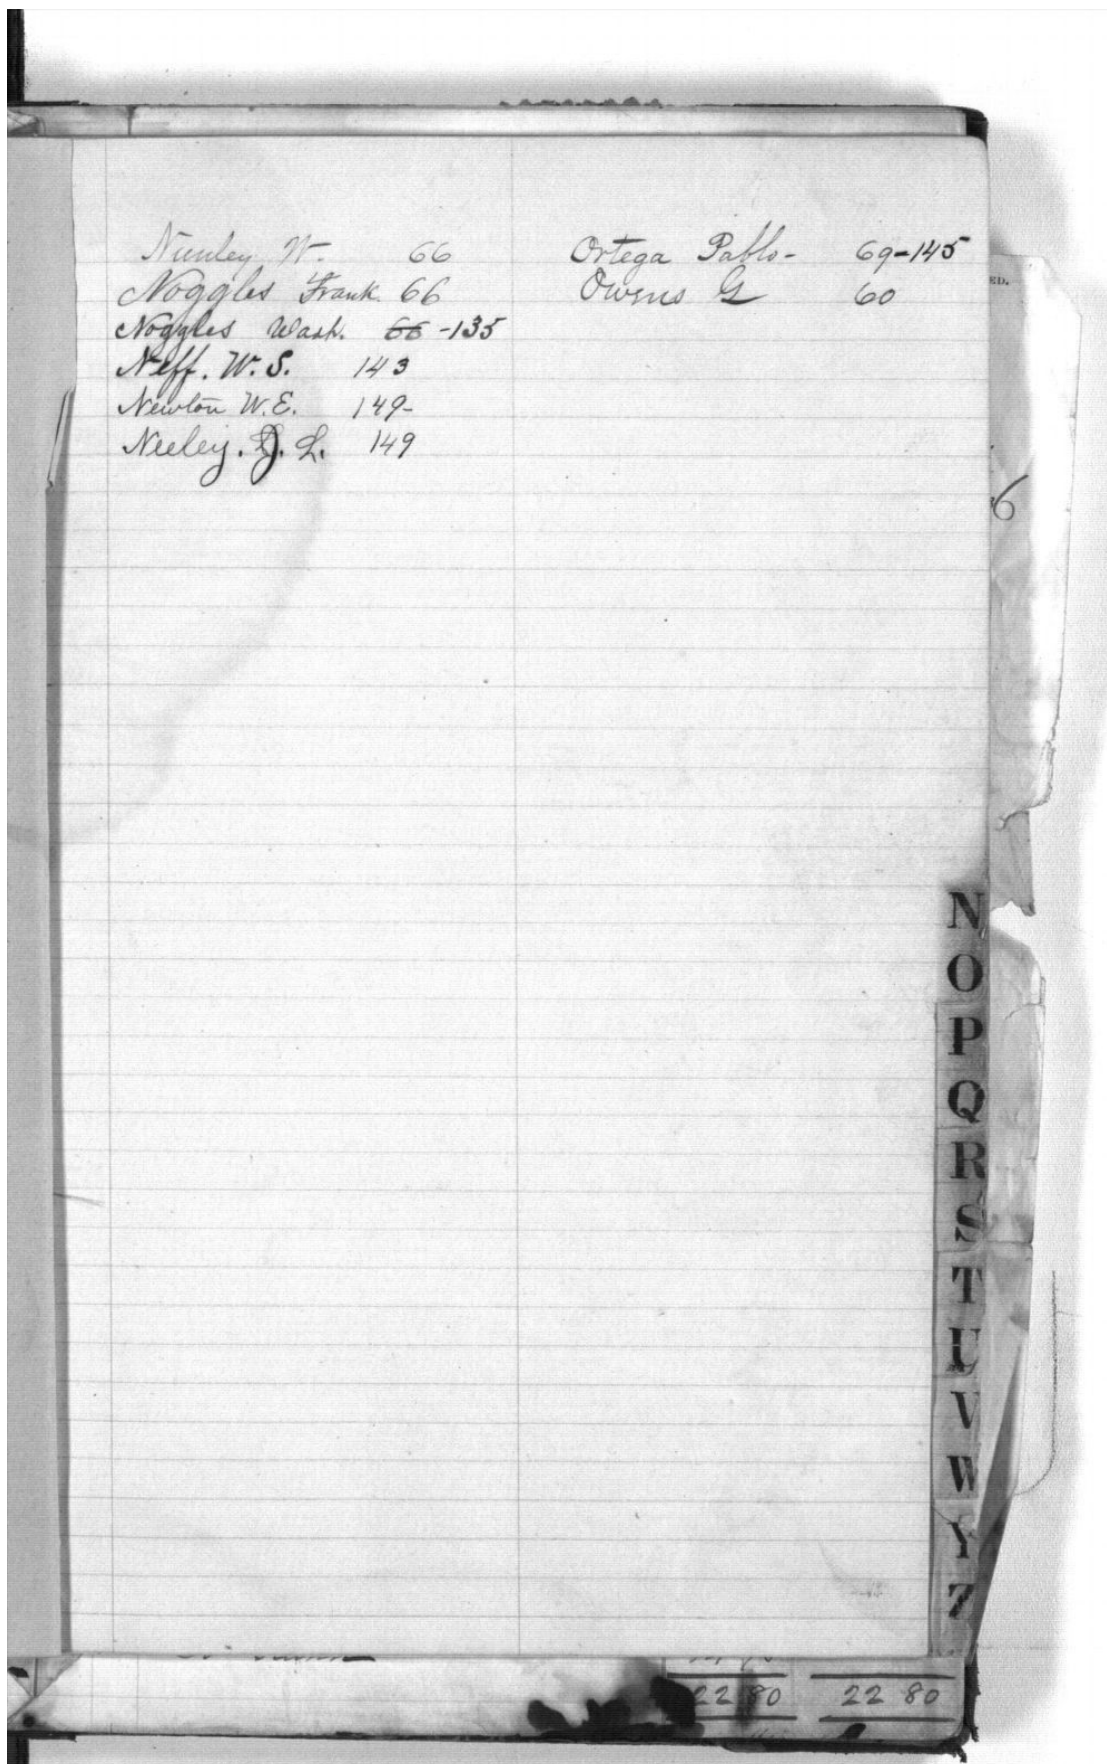 Nunley W. 66
Noggles Frank. 66
Noggles Wash. 66 -135
Neff. W. S. 143
Newton W. E. 149-
Neeley. J. L. 149
Ortega Pablo- 69-145
Owens G 60
ED.
6
N
O
P
Q
R
S
T
U
V
W
Y
Z
22 80 22 80